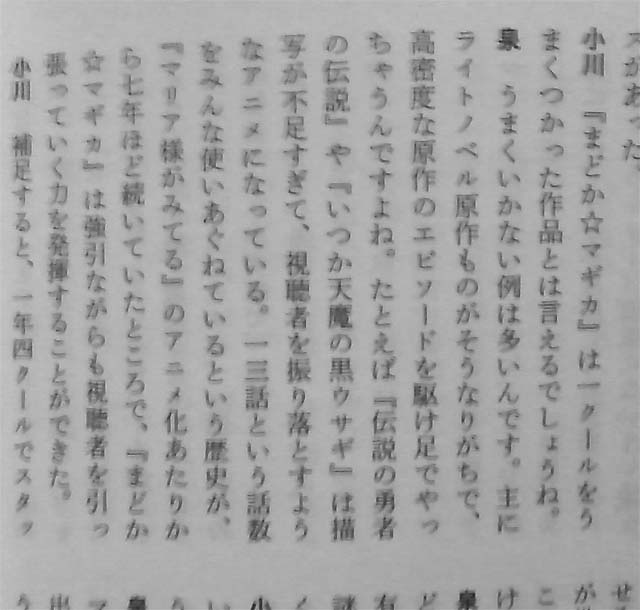 スがあった。
小川　『まどか☆マギカ』は一クールをう
まくつかった作品とは言えるでしょうね。
泉　うまくいかない例は多いんです。主に
ライトノベル原作ものがそうなりがちで、
高密度な原作のエピソードを駆け足でやっ
ちゃうんですよね。たとえば『伝説の勇者
の伝説』や『いつか天魔の黒ウサギ』は描
写が不足すぎて、視聴者を振り落とすよう
なアニメになっている。一三話という話数
をみんな使いあぐねているという歴史が、
『マリア様がみてる』のアニメ化あたりか
ら七年ほど続いていたところで、『まどか
☆マギカ』は強引ながらも視聴者を引っ
張っていく力を発揮することができた。
小川　補足すると、一年四クールでスタッ
せ
が
こ
け
泉
ど
有
謎
く
小
い
う
泉
マ
出
う